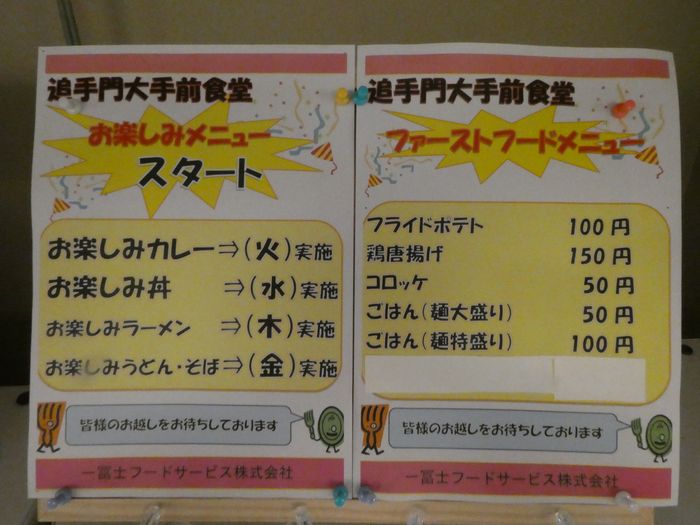 追手門大手前食堂
お楽しみメニュー
スタート
お楽しみカレー⇒(火)実施
お楽しみ丼 ⇒(水)実施
お楽しみラーメン ⇒(木)実施
お楽しみうどん・そば⇒(金)実施
皆様のお越しをお待ちしております
一冨士フードサービス株式会社
追手門大手前食堂
ファーストフードメニュー
フライドポテト 100円
鶏唐揚げ 150円
コロッケ 50円
ごはん(麺大盛り) 50円
ごはん(麺特盛り) 100円
皆様のお越しをお待ちしております
一冨士フードサービス株式会社